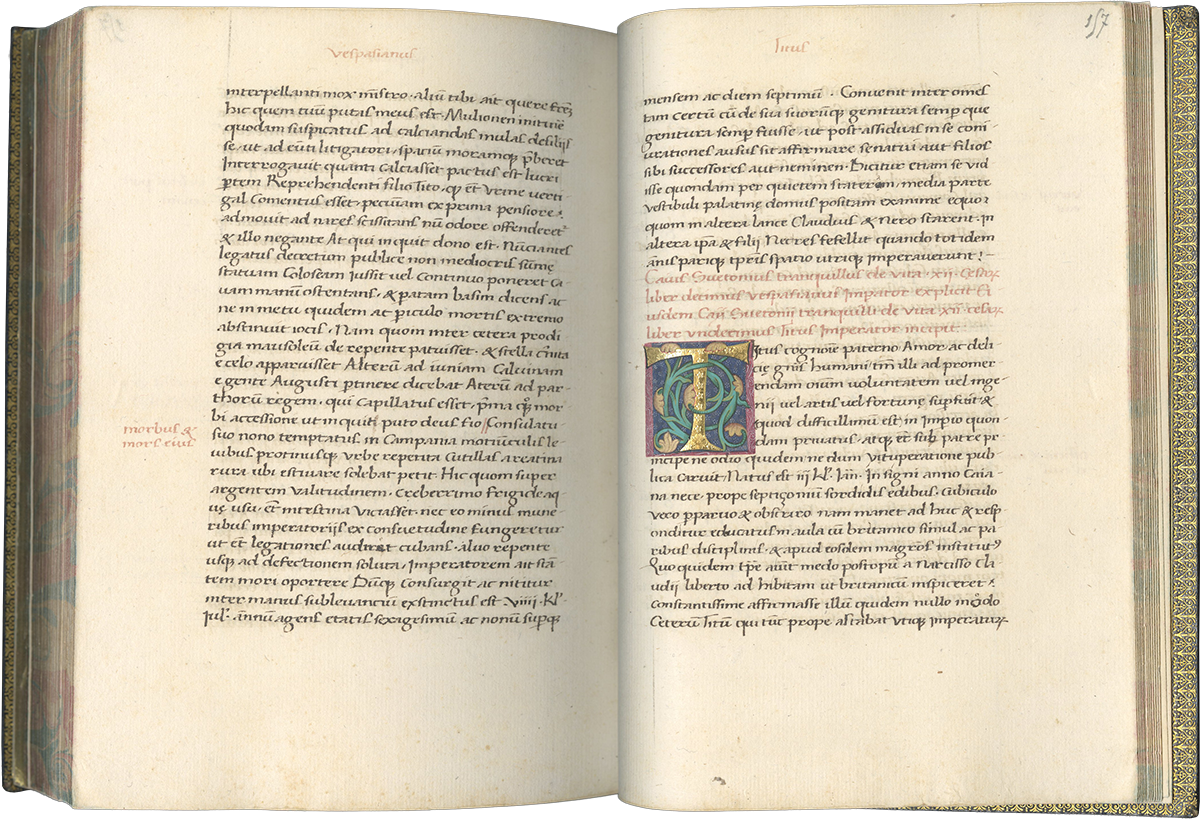 Vespasianus
interpellanti mox mīstro. aliū tibi ait quere frēz
hic quem tuū putas meus est. Mulionen in itinē
quodam suspicatus ad calciandas mulas desilijs
se. ut ad eūti litigatori. spatiū moramqꝫ p̄beret
Interrogavit quanti calciasset pactus est lucri
ꝑtem Reprehendenti filio Tito, qꝫ et vrine vecti
gal Comentus esset. pecuniam ex prima pensione.
admovit ad nares scissitans nū odore offenderet
& illo negante At qui in quit dono est. Nūciantes
legatus decretum publice non mediocris sūmę
statuam Coloseam Jussit vel Continuo poneret Ca
vam manum ostentans. & param basim dicens ac
ne in metu quidem ac ꝑiculo mortis extremo
abstinuit iocis. Nam quom inter cetera prodi
gia mausoleū de repente patuisset. & stella crinita
e celo apparuisset Alterū ad iuniam Calvinam
e gente Augusti ꝑtinere dicebat Aterū ad par-
thorū regem, qui Capillatus esset. p̄ma qꝫ mor-
bi accessione ut in quit puto deus fio Consulatu
suo nono temptatus in Campania motiunculis le-
vibus protinusqꝫ vrbe repetita Cutillas arcatina
rura ubi estivare solebat petit. Hic quom super
argentem valitudinem. Creberrimo frigide aq-
uę usu. et intestina viciasset. nec eo minus mune
ribus imperatorijs ex consuetudine fungeretur
ut et legationes audiret cubans. aluo repente
usqꝫ ad defectionem soluta, Imperatorem ait stā-
tem mori oportere Dūqꝫ Consurgit ac nititur
inter manus sublevanciū exstinctus est viiij. kl'.
iul'. annū agens etatis sexagesimum ac nonū suꝑqꝫ
morbus &
mors eius
Titus
157
mensem ac diem septimū. Convenit inter omēs
tam certū cū de sua suorūqꝫ genitura semꝑ que
genitura semꝑ fuisse. ut post assiduas in se coni
urationes ausus sit affirmare senatui aut filios
sibi successores aut neminem. Dicitur etiam se vid
isse quondam per quietem stateram. media parte
vestibuli palatine domus positam examine equo.
quom in altera lance Claudius & Nero starent. in
altera ipa & filij Nec res fefellit quando tot idem
annis pariqꝫ tp̄ris spatio utriqꝫ imperaverunt.
Caius Suetonius tranquillus de vita. xij. Cesaꝝ
liber decimus vespasianus Imperator explicit Ei
usdem Caii Suetonii tranquilli de vita xij cesaꝝ
liber vndecimus Titus Imperator incipit.
Titus cognoīe paterno Amor ac deli
cię gn̄is humani tm̄ illi ad promer
endam oīum voluntatem vel inge
nii vel artis vel fortunę suꝑfuit &
quod difficillimū est in Impio quon
dam privatus. atqꝫ et sub patre pr
incipe ne odio quidem ne dum vituperatione pub
lica caruit. Natus est iij kl'. Jan'. In signi anno Caia
na nece. prope septiçoniū sordidis edibus. Cubiculo
vero ꝑparvo & obscuro nam manet ad huc & resp
onditur educatus in aula cū britanico simul ac pa
ribus disciplinis. & apud eosdem magr̄os institutꝯ
Quo quidem tp̄e aiūt medo postopū a Narcisso Cla
udij liberto ad hibitam ut britanicum inspiceret.
constantissime affirmasse illū quidem nullo modo
Ceterum Titū qui tūc prope astabat vtiqꝫ imperaturꝫ